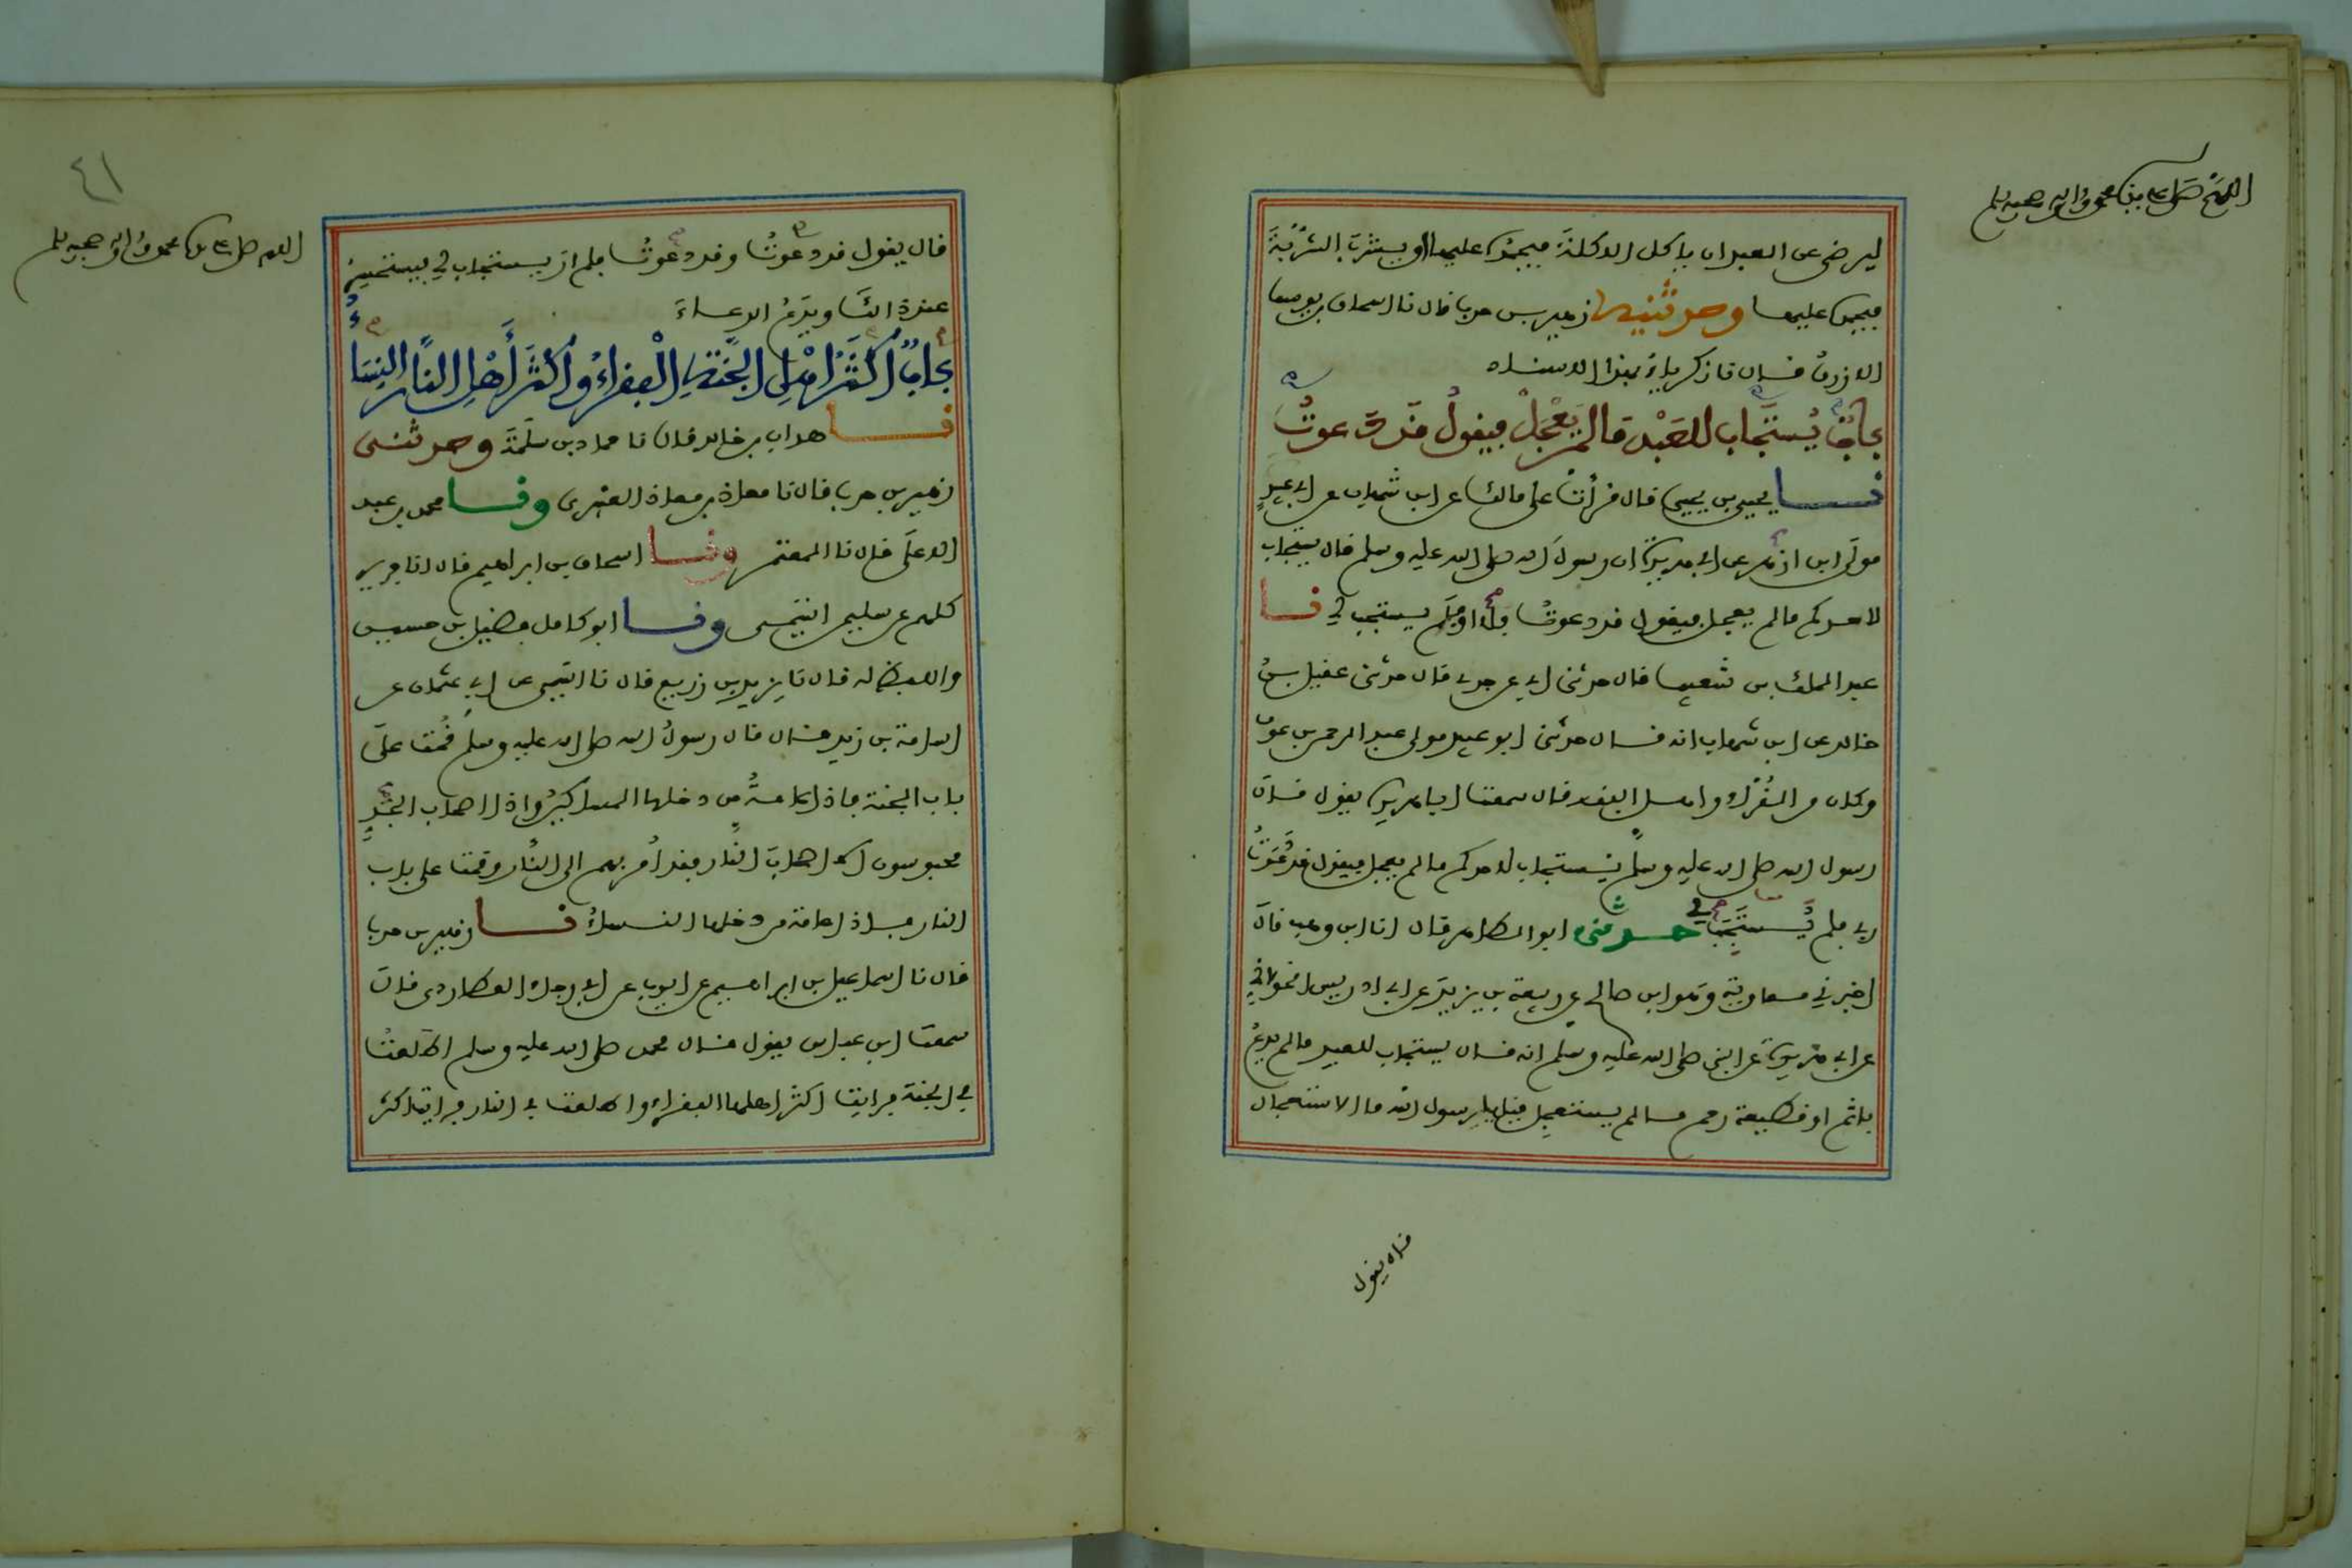 اللهم صل على سيدنا محمد وءاله وصحبه وسلم
ليرضى عن العبد ان ياكل الاكلة فيحمده عليها او يشرب الشربة
فيحمده عليها وحدثنيه زهير بن حرب قال نا اسحاق بن يوسف
الازرق قال نا زكرياء بهذا الاسناد
باب يستجاب للعبد ما لم يعجل فيقول قد دعوت
نا يحيى بن يحيى قال قرأت على مالك عن ابن شهاب عن ابي عبيد
مولى ابن ازهر عن ابي هريرة ان رسول الله صلى الله عليه وسلم قال يستجاب
لاحدكم ما لم يعجل فيقول قد دعوت فلا او فلم يستجب لي نا
عبد الملك بن شعيب قال حدثني ابي عن جدي قال حدثني عقيل بن
خالد عن ابن شهاب انه قال حدثني ابو عبيد مولى عبد الرحمن بن عوف
وكان من القراء واهل الفقه قال سمعت ابا هريرة يقول قال
رسول الله صلى الله عليه وسلم يستجاب لاحدكم ما لم يعجل فيقول قد دعوت
ربي فلم يستجب لي حدثني ابو الطاهر قال انا ابن وهب قال
اخبرني معاوية وهو ابن صالح عن ربيعة بن يزيد عن ابي ادريس الخولاني
عن ابي هريرة عن النبي صلى الله عليه وسلم انه قال يستجاب للعبد ما لم يدع
باثم او قطيعة رحم ما لم يستعجل قيل يا رسول الله ما الاستعجال
قال يقول
٤١
اللهم صل على سيدنا محمد وءاله وصحبه وسلم
قال يقول قد دعوت وقد دعوت فلم ار يستجاب لي فيستحسر
عند ذالك ويدع الدعاء
باب اكثر اهل الجنة الفقراء واكثر أهل النار النساء
نا هداب بن خالد قال نا حماد بن سلمة وحدثني
زهير بن حرب قال نا معاذ بن معاذ العنبري ونا محمد بن عبد
الاعلى قال نا المعتمر ونا اسحاق بن ابراهيم قال انا جرير
كلهم عن سليمن التيمي ونا ابو كامل فضيل بن حسين
واللفظ له قال نا يزيد بن زريع قال نا التيمي عن ابي عثمان عن
اسامة بن زيد قال قال رسول الله صلى الله عليه وسلم قمت على
باب الجنة فاذا عامة من دخلها المساكين واذا اصحاب الجد
محبوسون الا اصحاب النار فقد أمر بهم الى النار وقمت على باب
النار فاذا عامة من دخلها النساء نا زهير بن حرب
قال نا اسماعيل بن ابراهيم عن ايوب عن ابي رجاء العطاردي قال
سمعت ابن عباس يقول قال محمد صلى الله عليه وسلم اطلعت
في الجنة فرايت اكثر اهلها الفقراء واطلعت في النار فرايت اكثر